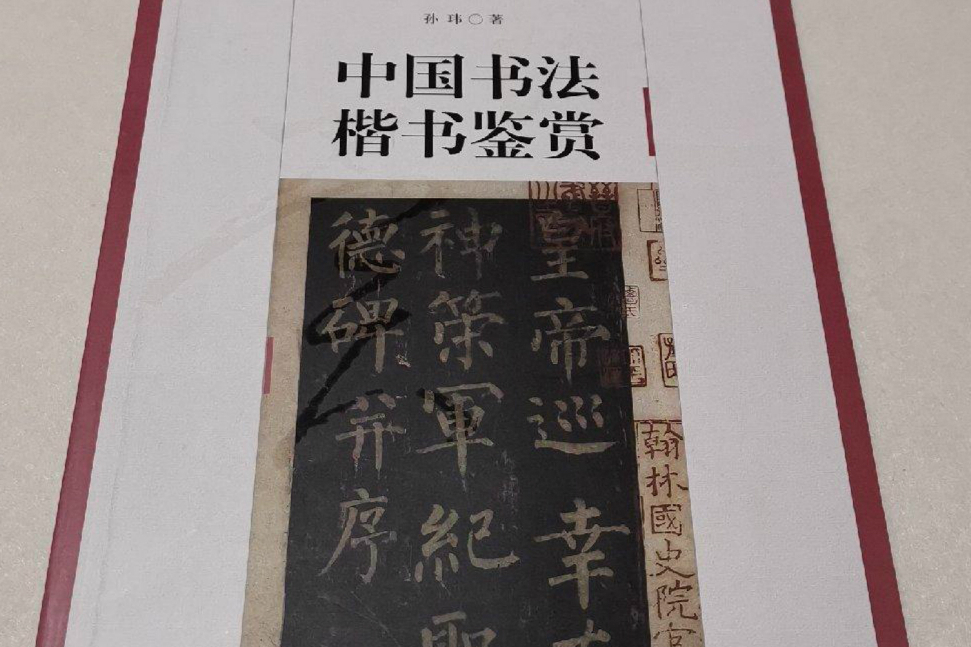 孙玮〇著
中国书法
楷书鉴赏
皇帝巡幸
神策軍紀聖
德碑并序
翰林國史院官